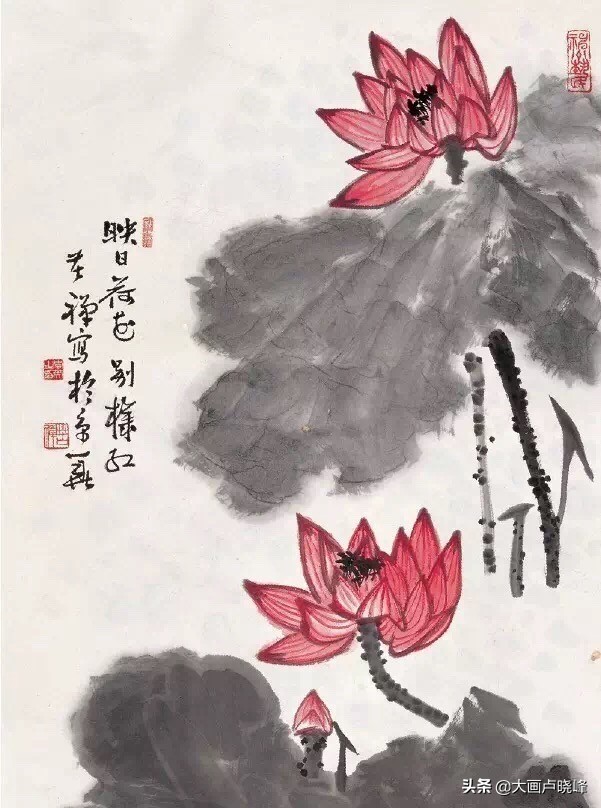 映日荷花别样红
苦禅写於京華
头条 @大画卢晓峰